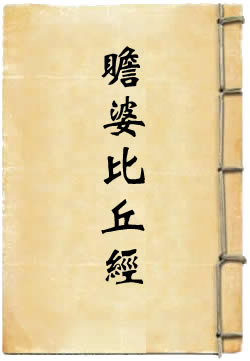 瞻婆比丘經